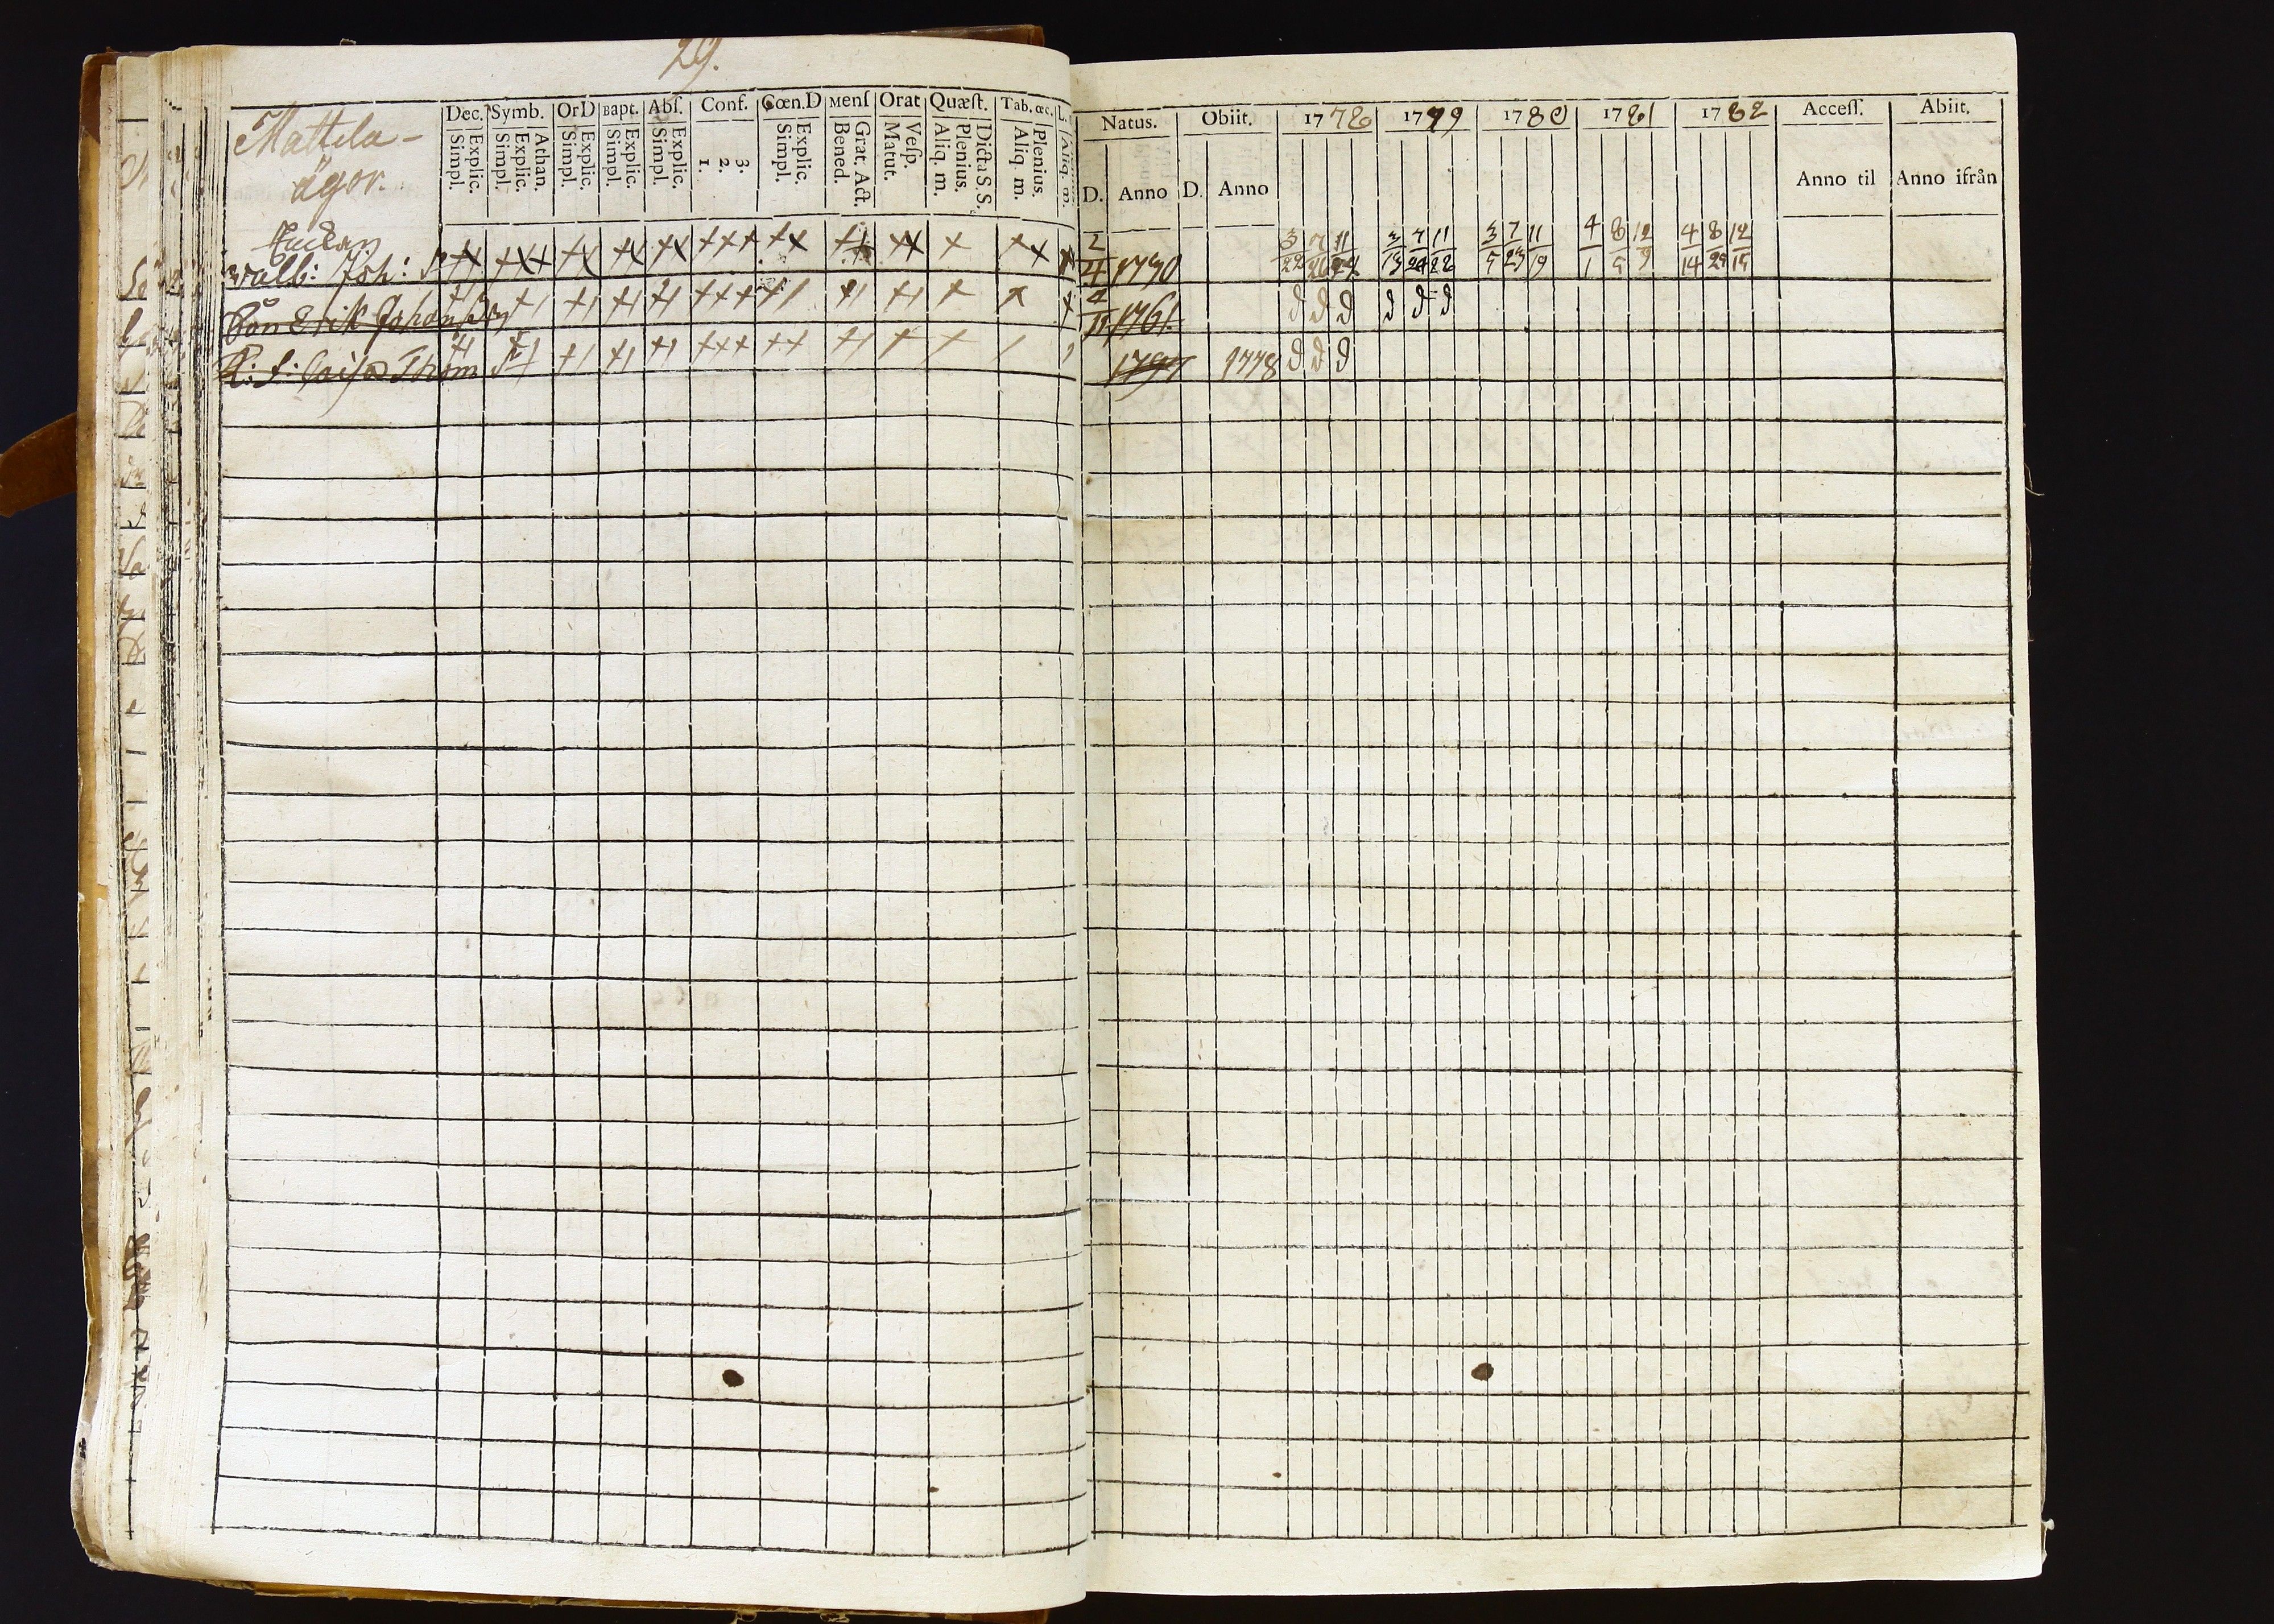 29.
Mattila-
ägor.
Dec. Symb. OrD Bapt. Abſ. Conf. Cœn.D Menſ Orat Quæſt. Tab. œc. L.
Explic. Simpl. Athan. Explic. Simpl. Explic. Simpl. Explic. Simpl. Explic. Simpl. 3. 2. 1. Explic. Simpl. Grat. Act. Bened. Veſp. Matut. Dicta S. S. Plenius. Aliq. m. Plenius. Aliq. m. Aliq. m.
Natus. Obiit. 1778 1779 1780 1781 1782 Acceſſ. Abiit.
D. Anno D. Anno Anno til Anno ifrån
Enckan
Valb: Joh: 2/4 1730 3/22 7/26 11/ 3/13 7/24 11/22 3/5 7/23 11/19 4/1 8/5 12/9 4/14 8/29 12/15
Son Erik Johansson 4/11 1761. d d d d d d
Thom 1778 d d d